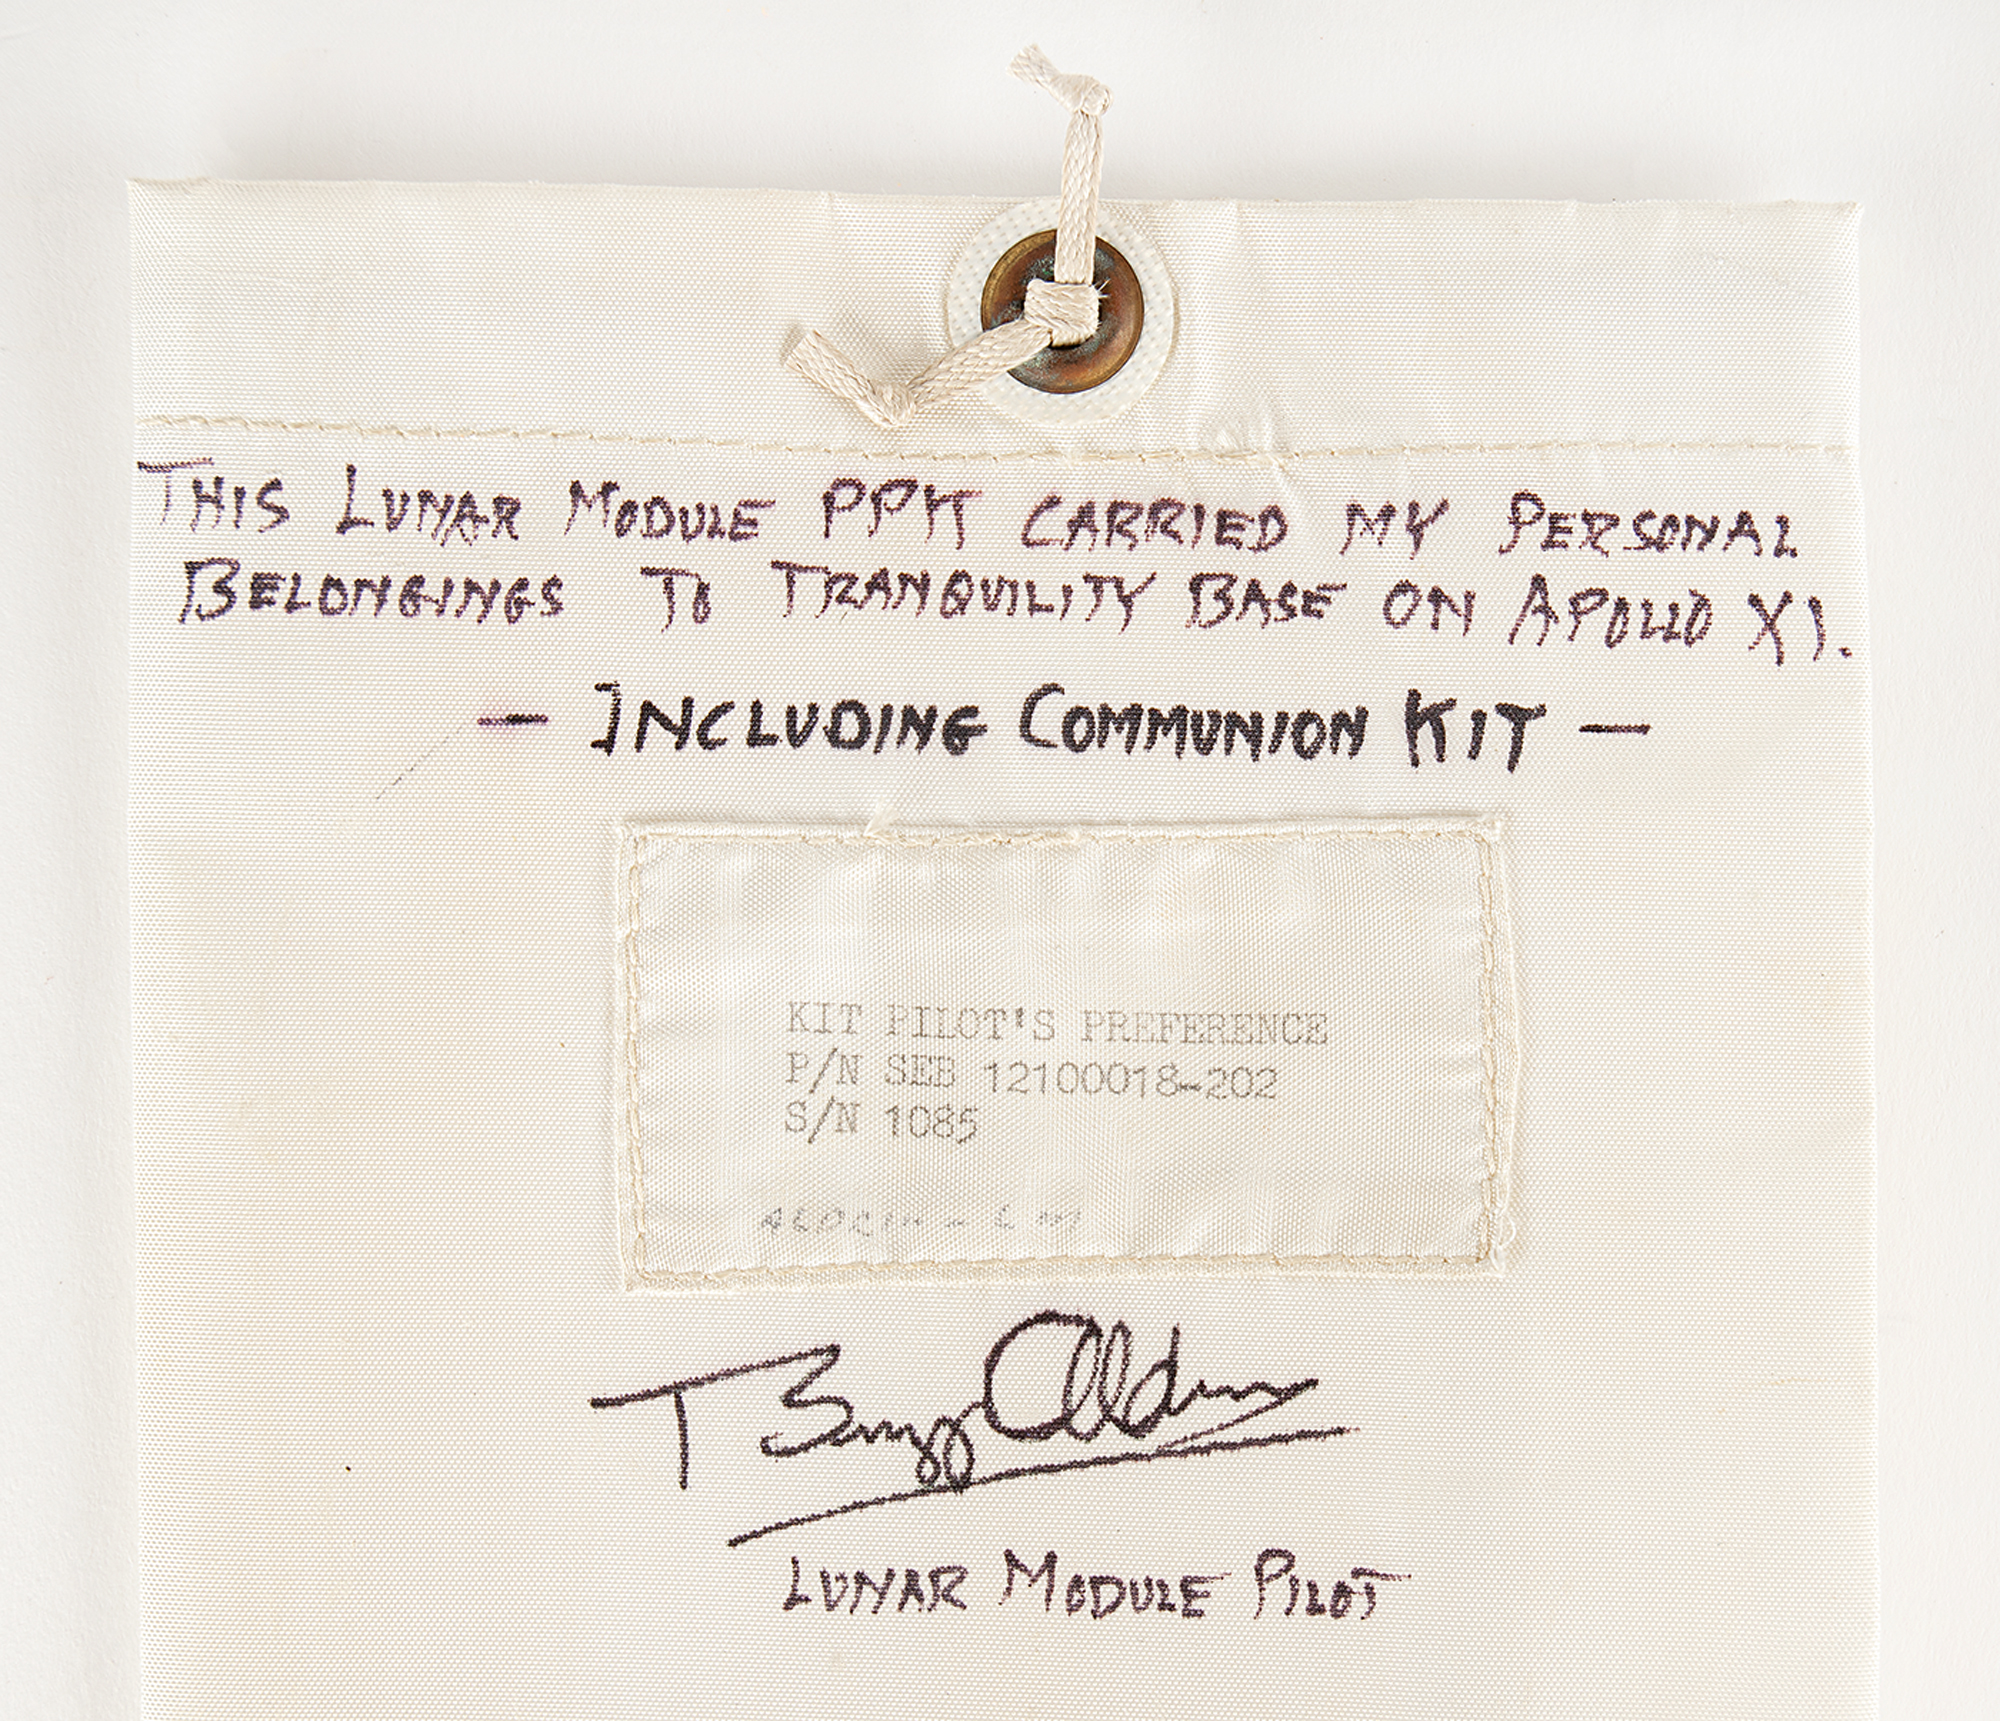 THIS LUNAR MODULE PPK CARRIED MY PERSONAL
BELONGINGS TO TRANQUILITY BASE ON APOLLO XI.
— INCLUDING COMMUNION KIT —
KIT PILOT'S PREFERENCE
P/N SEB 12100018-202
S/N 1085
ALDRIN - LM
T Buzz Aldrin
LUNAR MODULE PILOT